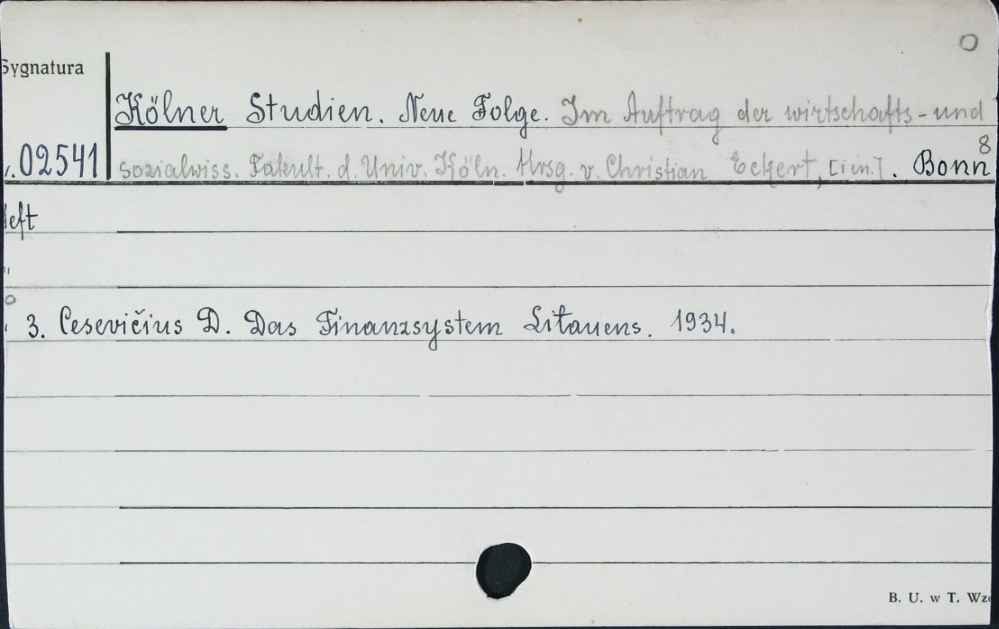 Sygnatura
Kölner Studien. Neue Folge. Im Auftrag der wirtschafts-und
02541 sozialwiss. Fakult. d. Univ. Köln. Hrsg. v. Christian Eckert, [i in.]. Bonn 8
Heft
3. Cesevičius D. Das Finanzsystem Litauens. 1934.
B. U. w T.